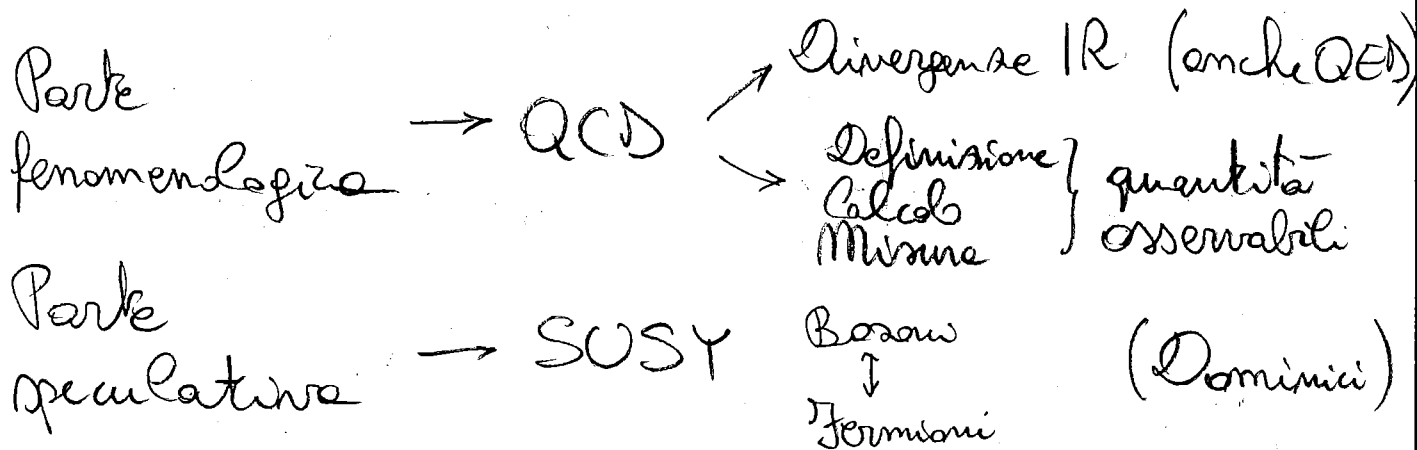 Parte fenomenologica → QCD
Divergenze IR (anche QED)
Definizione
Calcolo
Misura
} quantità osservabili
Parte speculativa → SUSY
Bosoni
↕
Fermioni
(Dominici)